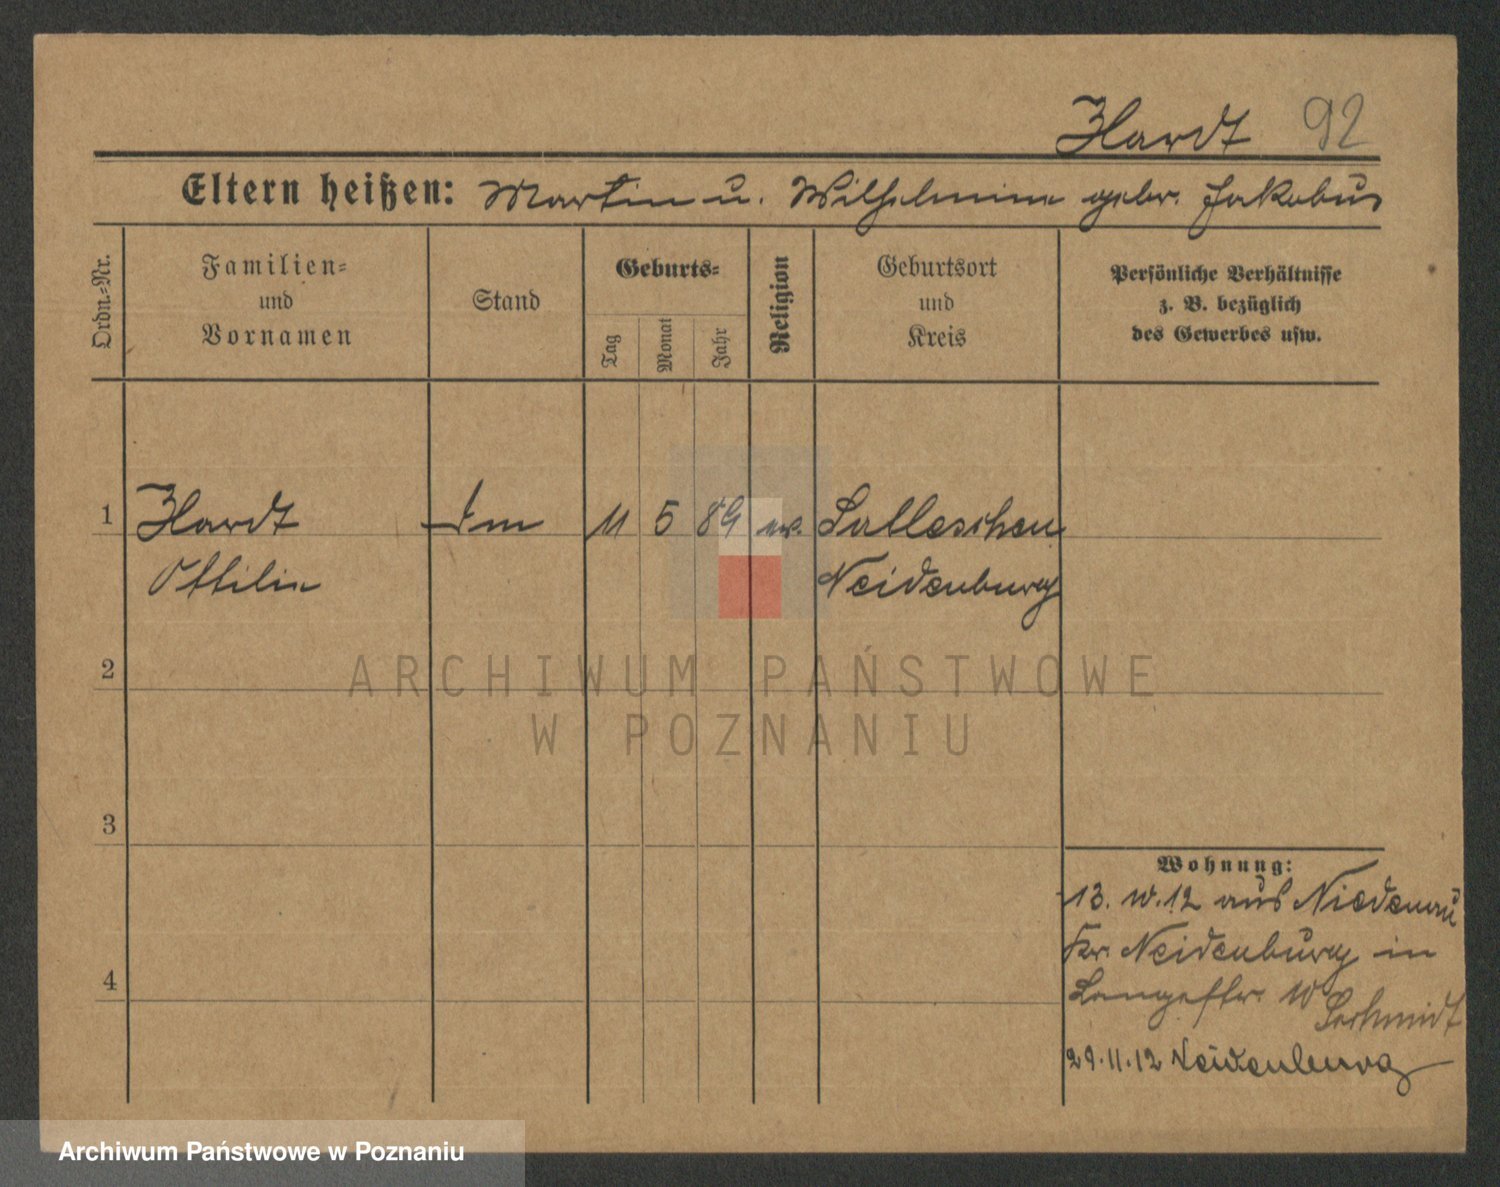 Hardt 92
Eltern heißen: Martin u. Wilhelmine gebr. Jakobus
Ordn.-Nr.
Familien-
und
Vornamen
Stand
Geburts-
Tag
Monat
Jahr
Religion
Geburtsort
und
Kreis
Persönliche Verhältnisse
z. B. bezüglich
des Gewerbes usw.
1 Hardt 11 5 89 ev. Salleschen
Ottilie Neidenburg
2
ARCHIWUM PAŃSTWOWE
W POZNANIU
3
Wohnung:
13. 10. 12 aus Niedenau
Kr. Neidenburg in
4
Langestr. 10
Schmidt
29.11.12 Neidenburg
Archiwum Państwowe w Poznaniu